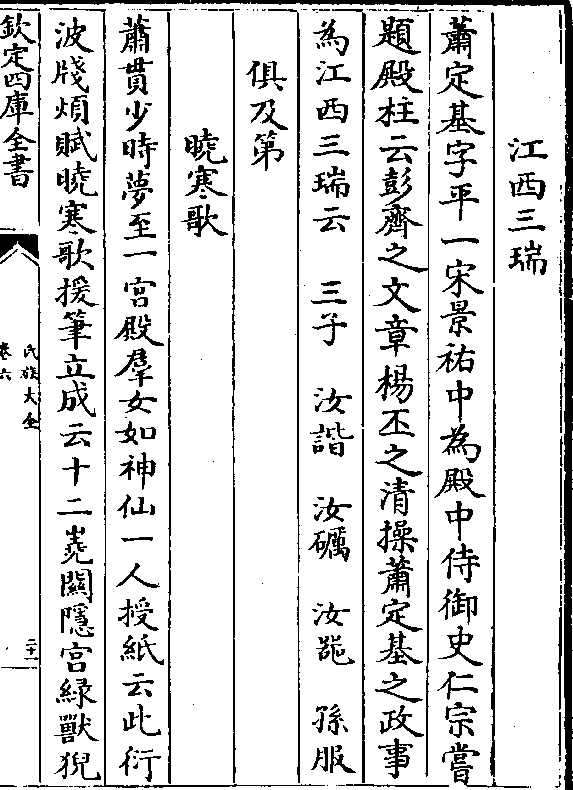 江西三瑞
蕭定基字平一宋景祐中為殿中侍御史仁宗嘗
題殿柱云彭齊之文章楊丕之清操蕭定基之政事
為江西三瑞云 三子 汝諧 汝礪 汝 孫服
俱及第
曉寒歌
蕭貫少時夢至一宮殿羣女如神仙一人授紙云此衍
波牋煩賦曉寒歌援筆立成云十二嶤關隱宮緑獸猊
欽定四庫全書
氏族大全
卷六
二十一